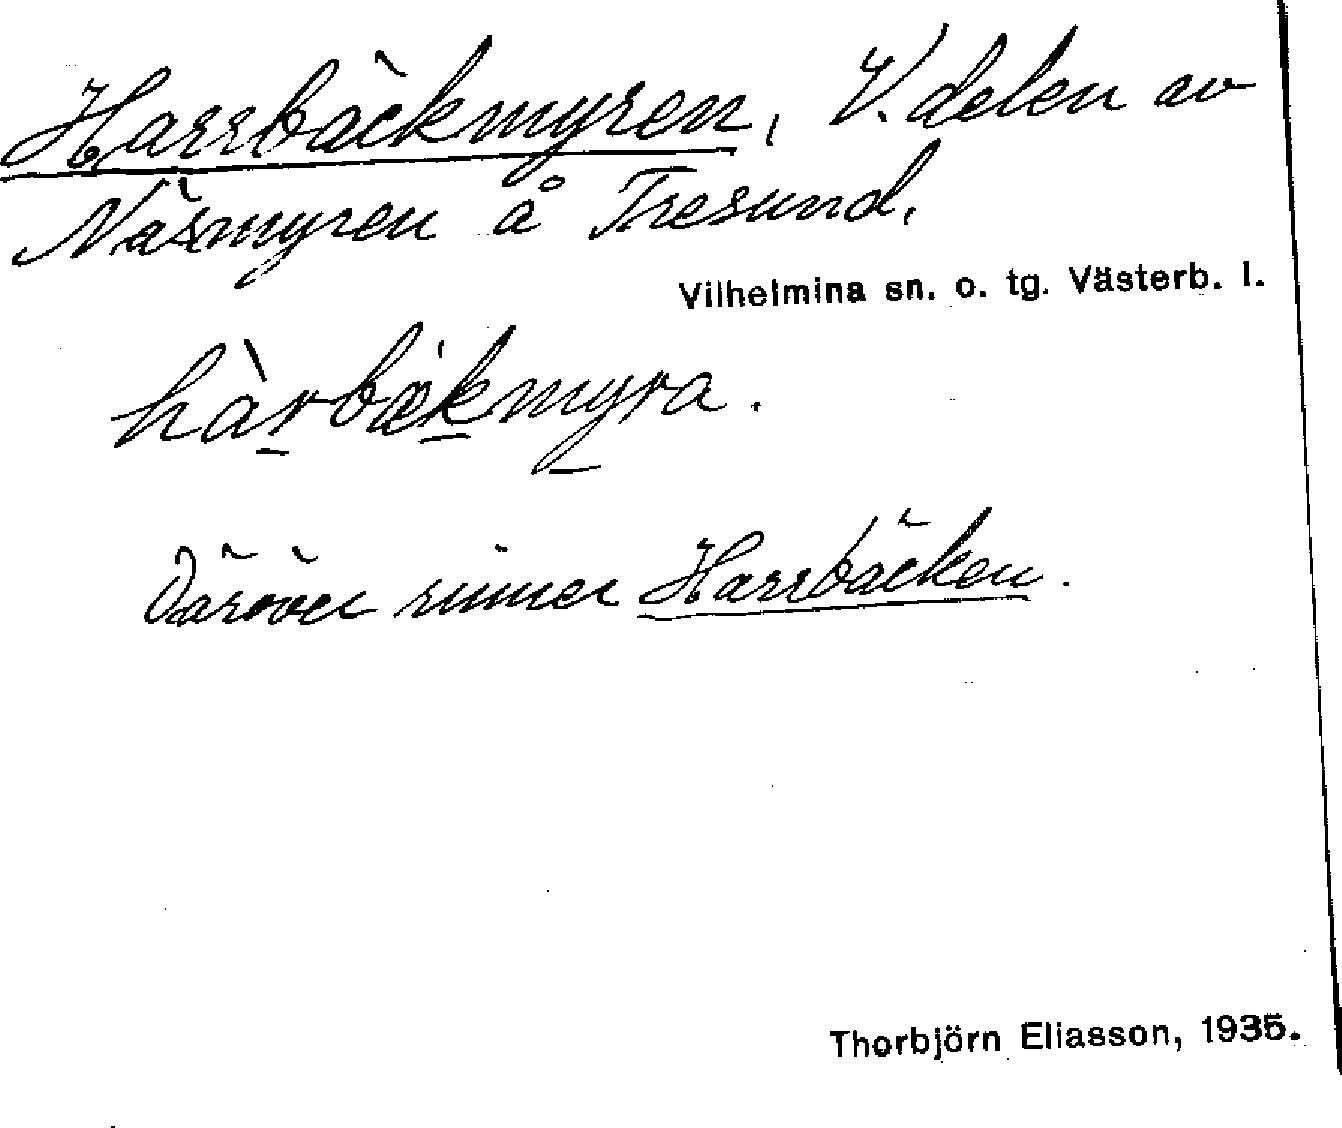 Harrbäckmyren, V. delen av
Näsmyren å Tresund.
Vilhelmina sn. o. tg. Västerb. l.
hàrbækmyra.
Däröver rinner Harrbäcken.
Thorbjörn Eliasson, 1935.